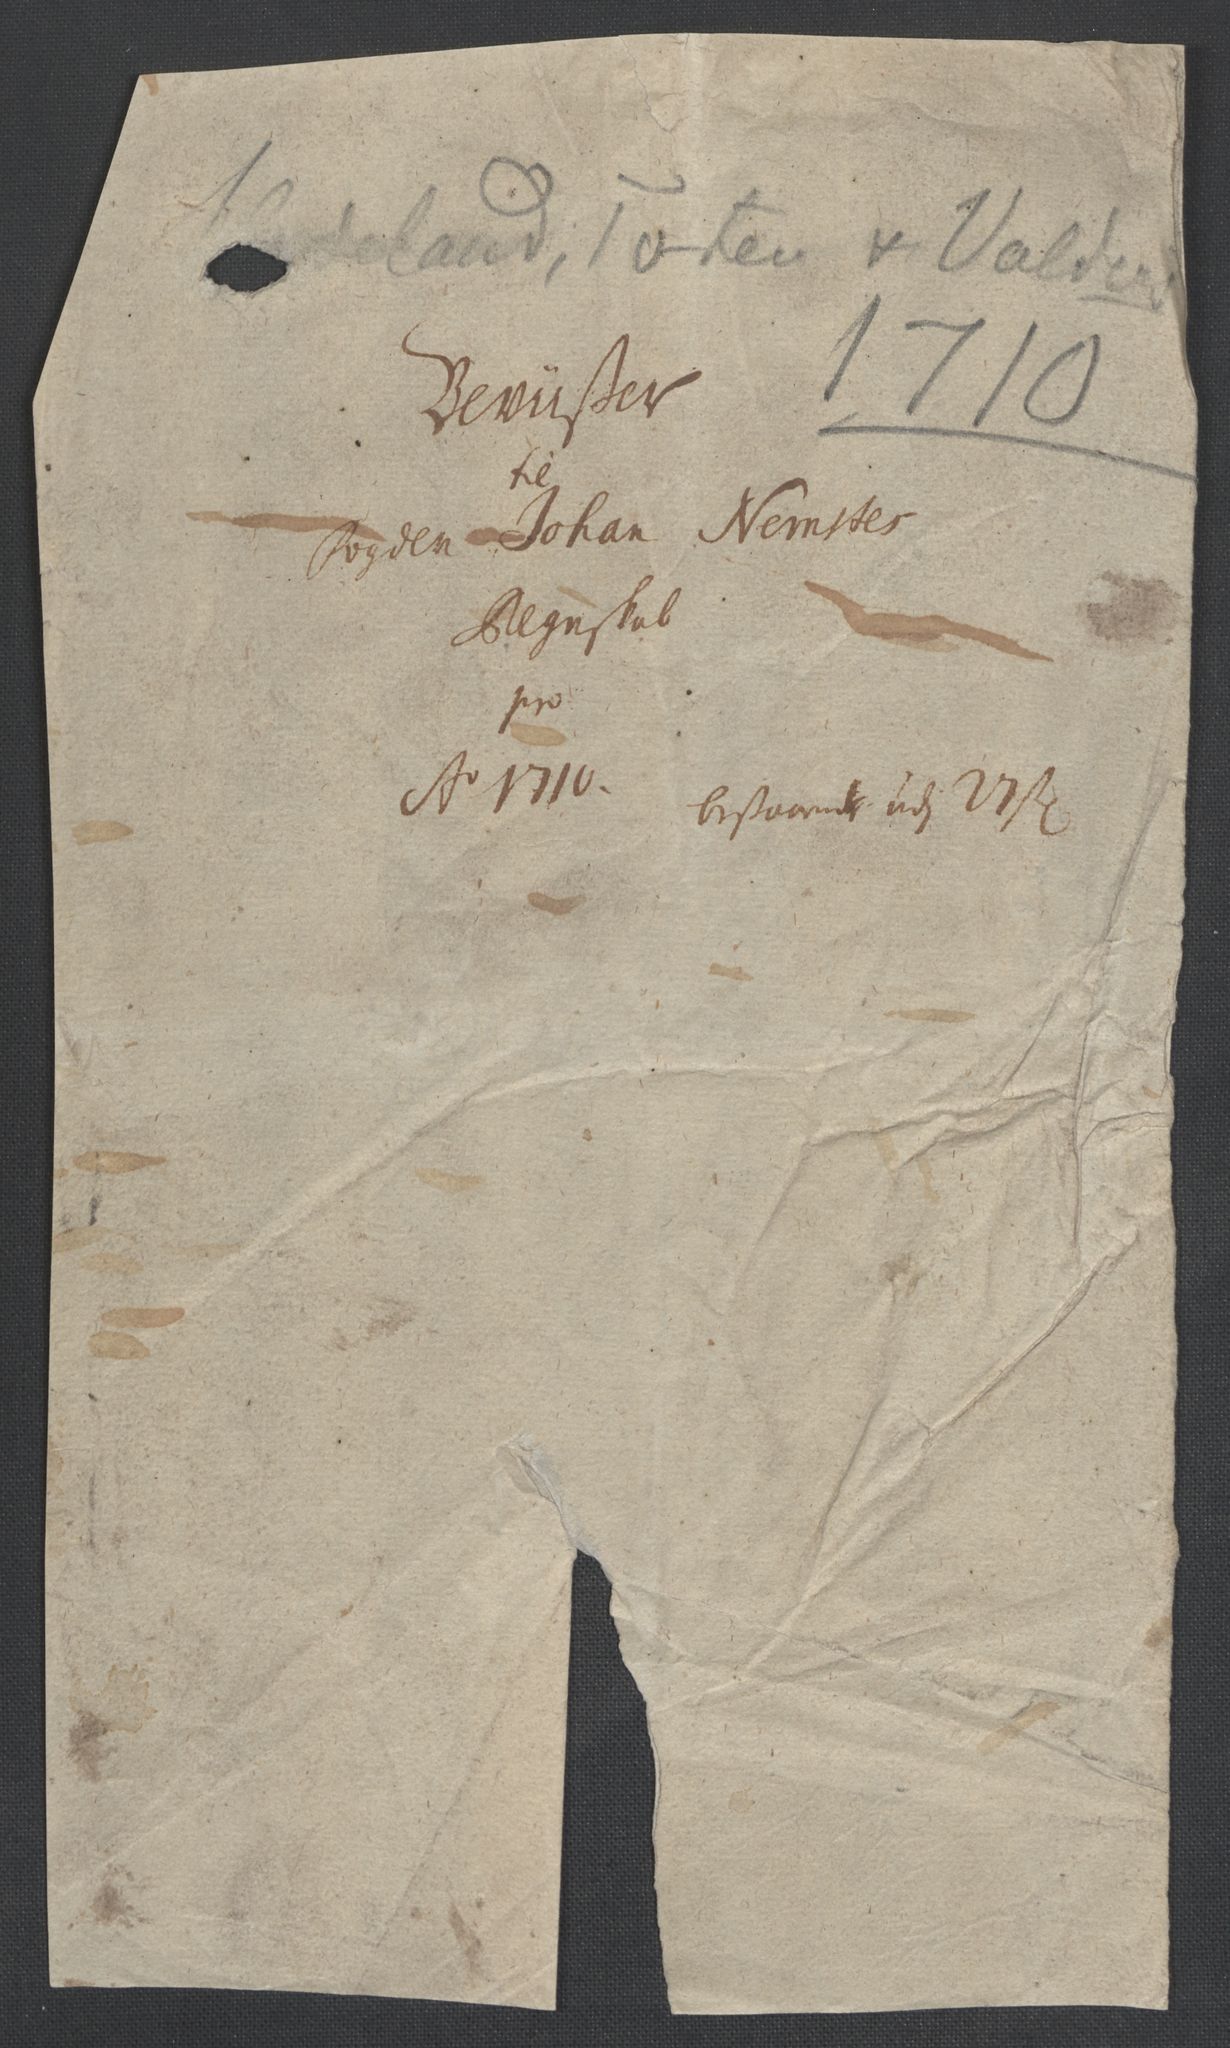 Hadeland, Toten & Valders
1710
Beviißer
til
Fogden Johan Nemstes
Regnskab
pro
Ao 1710.
bestaaende udj 27 st